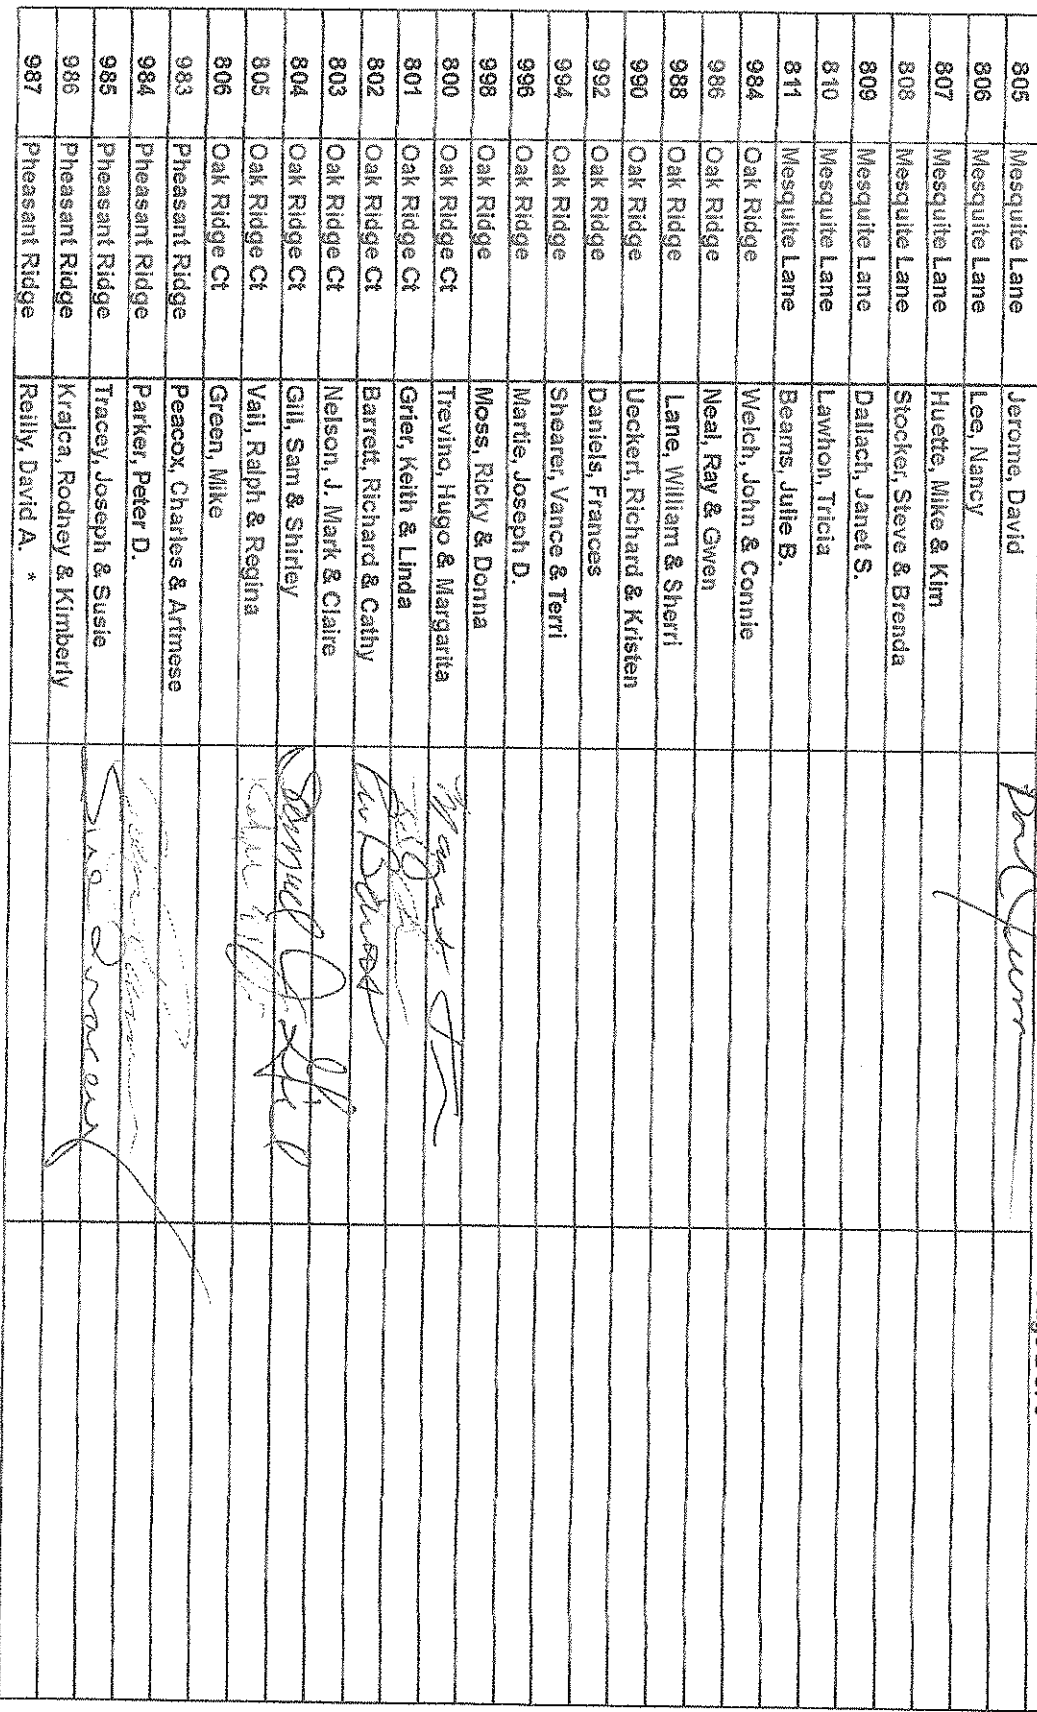 805 Mesquite Lane Jerome, David
806 Mesquite Lane Lee, Nancy
807 Mesquite Lane Huette, Mike & Kim
808 Mesquite Lane Stocker, Steve & Brenda
809 Mesquite Lane Dallach, Janet S.
810 Mesquite Lane Lawhon, Tricia
811 Mesquite Lane Beams, Julie B.
984 Oak Ridge Welch, John & Connie
986 Oak Ridge Neal, Ray & Gwen
988 Oak Ridge Lane, William & Sherri
990 Oak Ridge Ueckert, Richard & Kristen
992 Oak Ridge Daniels, Frances
994 Oak Ridge Shearer, Vance & Terri
996 Oak Ridge Martie, Joseph D.
998 Oak Ridge Moss, Ricky & Donna
800 Oak Ridge Ct Trevino, Hugo & Margarita
801 Oak Ridge Ct Grier, Keith & Linda
802 Oak Ridge Ct Barrett, Richard & Cathy
803 Oak Ridge Ct Nelson, J. Mark & Claire
804 Oak Ridge Ct Gill, Sam & Shirley Samuel
805 Oak Ridge Ct Vail, Ralph & Regina
806 Oak Ridge Ct Green, Mike
983 Pheasant Ridge Peacox, Charles & Artmese
984 Pheasant Ridge Parker, Peter D.
985 Pheasant Ridge Tracey, Joseph & Susie Tracey
986 Pheasant Ridge Krajca, Rodney & Kimberly
987 Pheasant Ridge Reilly, David A. *